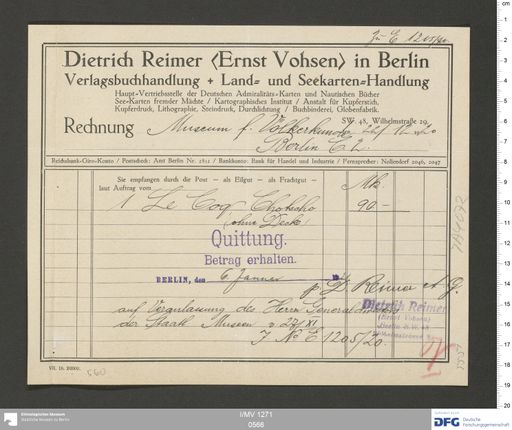 Zu E 1205/20
Dietrich Reimer (Ernst Vohsen) in Berlin
Verlagsbuchhandlung + Land- und Seekarten-Handlung
Haupt-Vertriebsstelle der Deutschen Admiralitäts-Karten und Nautischen Bücher
See-Karten fremder Mächte / Kartographisches Institut / Anstalt für Kupferstich,
Kupferdruck, Lithographie, Steindruck, Durchlichtung / Buchbinderei, Globenfabrik.
SW. 48, Wilhelmstraße 29
Rechnung Museum f. Völkerkunde
Berlin
Reichsbank-Giro-Konto / Postscheck: Amt Berlin Nr. / Bankkonto: Bank für Handel und Industrie / Fernsprecher: Nollendorf 2046, 2047
Sie empfangen durch die Post – als Eilgut – als Frachtgut –
laut Auftrag vom
Mk.
1 Le Coq Chotscho 90.–
(ohne Decke)
Quittung.
Betrag erhalten.
BERLIN, den 6 Januar
p. D. Reimer A. G.
auf Veranlassung des Herrn Generaldirektors
der Staatl. Museen v. 27/XI
J No E 1205/20.
Dietrich Reimer
(Ernst Vohsen)
Berlin S.W. 48
Wilhelmstrasse
560
Ethnologisches Museum
Staatliche Museen zu Berlin
I/MV 1271
0566
DFG Deutsche
Forschungsgemeinschaft